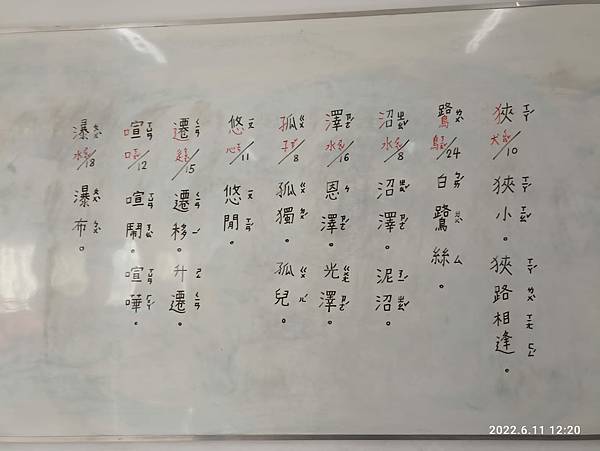 狹 犬部/10 狹小。狹路相逢。
鷺 鳥部/24 白鷺絲。
沼 水部/8 沼澤。泥沼。
澤 水部/16 恩澤。光澤。
孤 子部/8 孤獨。孤兒。
悠 心部/11 悠閒。
遷 辵部/15 遷移。升遷。
喧 口部/12 喧鬧。喧嘩。
瀑 水部/18 瀑布。
2022.6.11 12:20